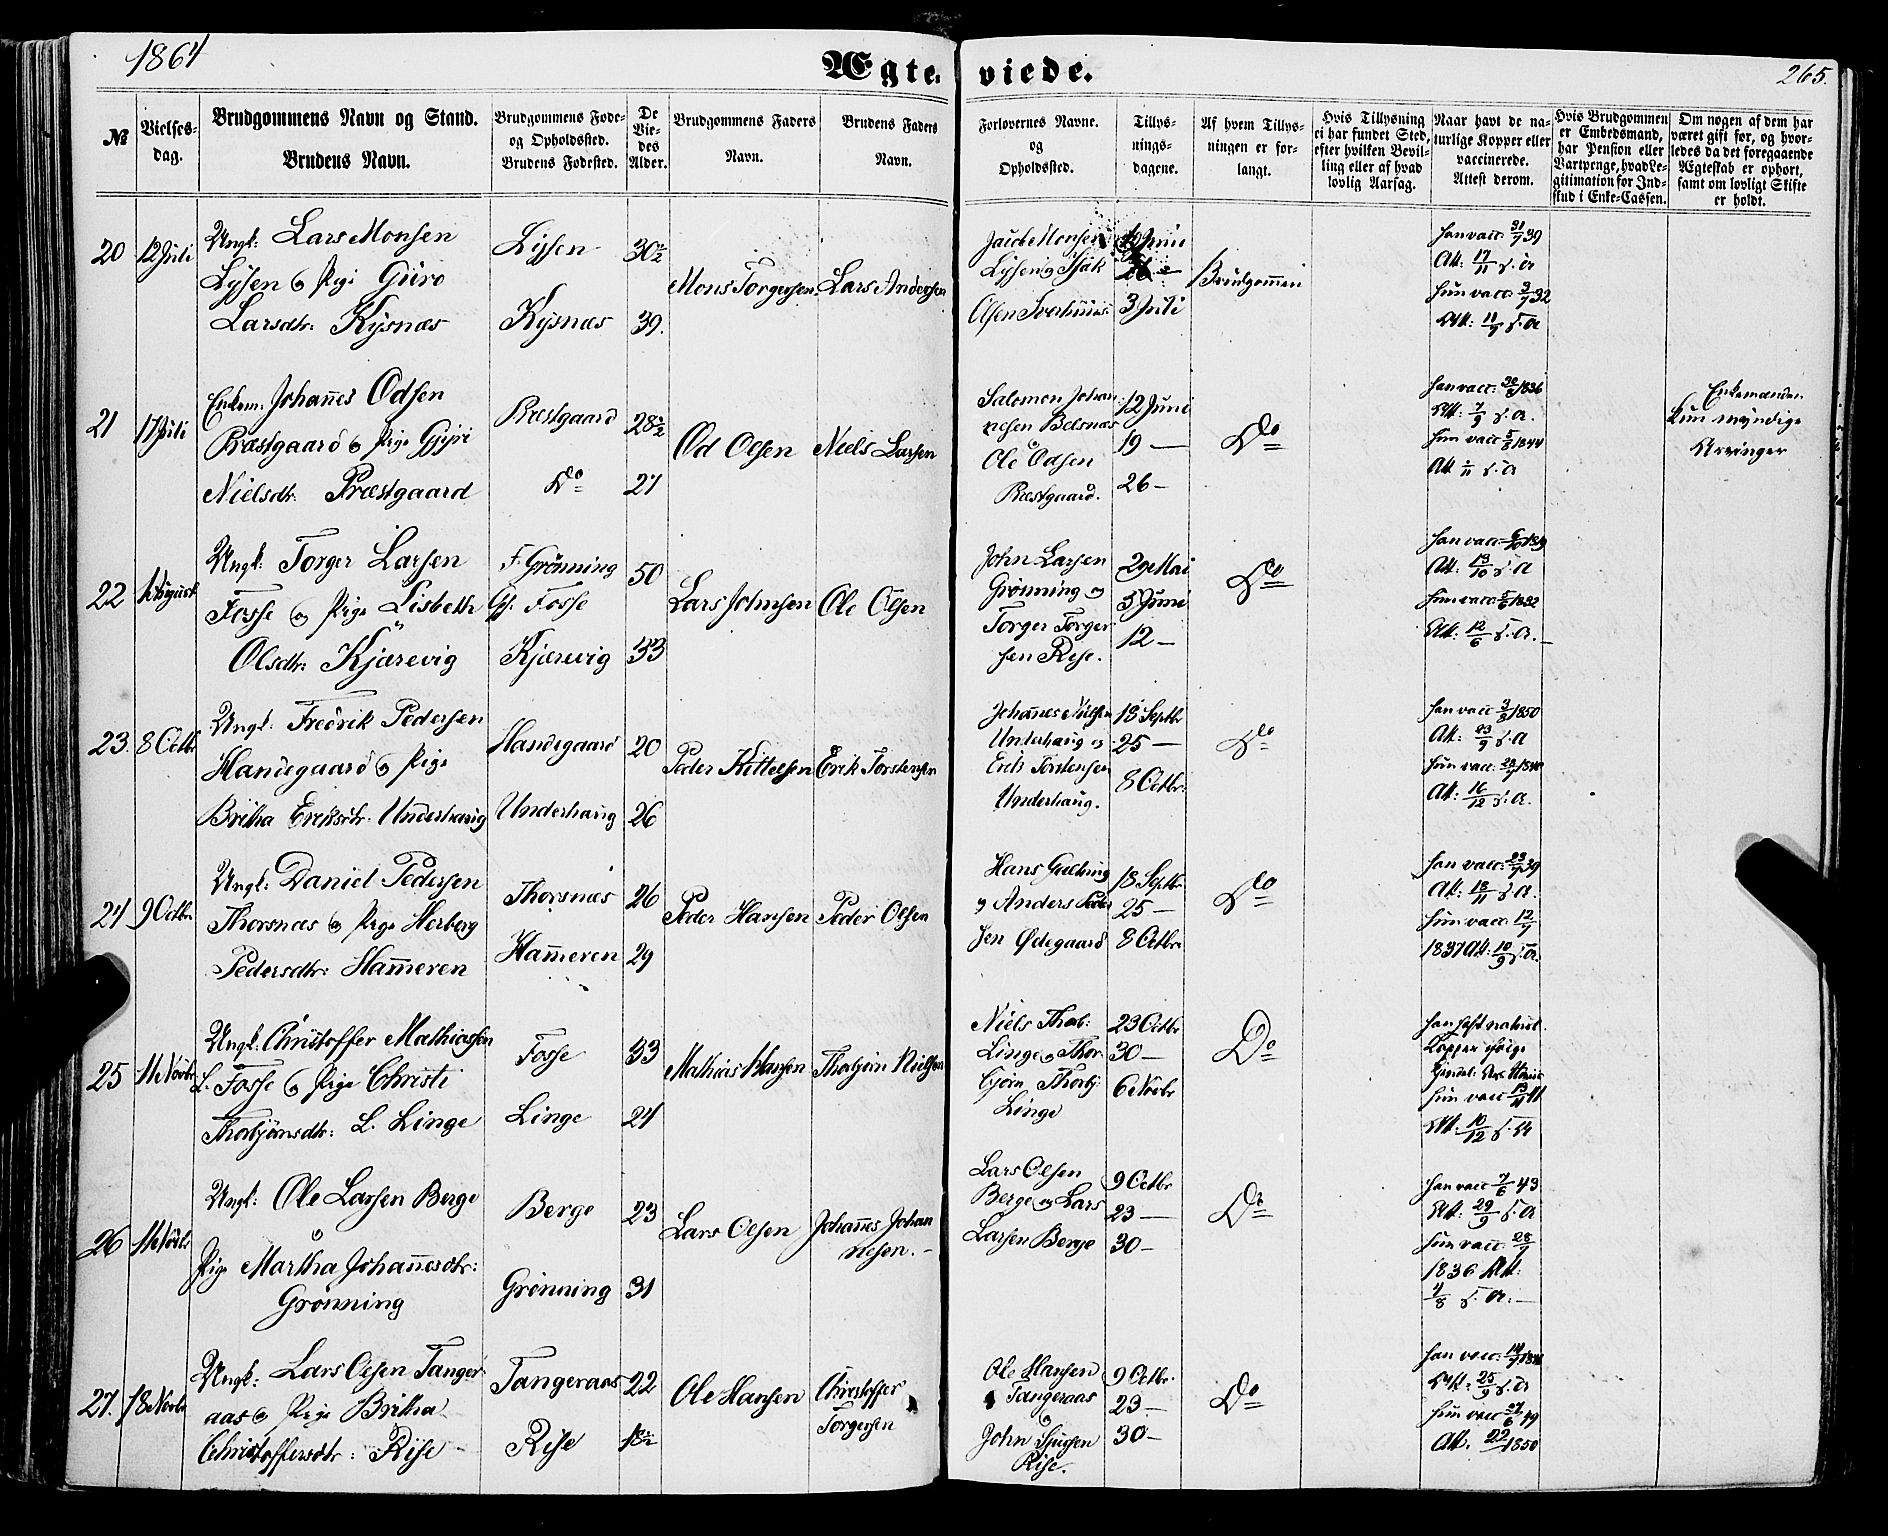 1864
Ægteviede.
265.
№
Vielses-
dag.
Brudgommens Navn og Stand.
Brudens Navn.
Brudgommens Føde-
og Opholdssted.
Brudens Fødested.
De
Vie-
des
Alder.
Brudgommens Faders
Navn.
Brudens Faders
Navn.
Forlovernes Navne.
og
Opholdssted.
Tillys-
nings-
dagene.
Af hvem Tillys-
ningen er for-
langt.
Hvis Tillysning
ei har fundet Sted,
efter hvilken Bevil-
ling eller af hvad
lovlig Aarsag.
Naar havt de na-
turlige Kopper eller
vaccinerede.
Attest derom.
Hvis Brudgommen
er Embedsmand,
har Pension eller
Vartpenge, hvad Le-
gitimation for Ind-
skud i Enke-Cassen.
Om nogen af dem har
været gift før, og hvor-
ledes da det foregaaende
Ægteskab er ophørt,
samt om lovligt Skifte
er holdt.
20 12 Juli
Ungk: Lars Monsen
Lysen og Pige Guro
Larsdtr: Kysnæs
Lysen
Kysnæs
30½
39.
Mons Torgersen
Lars Andersen
Monsen
Lysen og Isak
Olsen
Juni
3 Juli
Brudgommen
han vacc: 39
Att: 17/11 s. a
hun vacc: 3/7 32
Att: 11/9 s. a
21 17 Juli
Enkem: Johañes Odsen
Præstgaard og Pige Gjyri
Nielsdtr: Præstgaard
Præstgaard
Do
28½
27
Od Olsen
Niels Larsen
Salomon Johan
nesen Belsnæs
Ole Odsen
Præstgaard.
12 Juni
19 —
26 —
Do
han vacc: 1836
Att: 7/9 s. a.
hun vacc 1844
Att s. a
Enkemanden
kun myndige
Arvinger
22 August
Ungk: Torger Larsen
Fosse og Pige Lisbeth
Olsdtr: Kjærevig
F. Grønning
Fosse
Kjærevig
50
33
Lars Johnsen
Ole Olsen
John Larsen
Grønning og
Torger Torger
sen Rise.
29 Mai
5 Juni
12 —
Do
han vacc:
Att: 13/10 s. a
hun vacc: 1832
Att: 12/6 s. a. —
23. 8 Octbr
Ungk: Fredrik Pedersen
Handegaard og Pige
Britha Eriksdtr: Underhaug
Handegaard
Underhaug
20
26
Peder Kittelsen
Erik Torstensen
Johañes Nielsen
Underhaug og
Erik Torstensen
Underhaug.
18 Septbr
25 —
8 Octbr:
Do
han vacc 1850
Att: 23/9 s. a
hun vacc: 1840
Att: 16/12 s. a.
24 9 Octbr
Ungk: Daniel Pedersen
Thorsnæs og Pige Herborg
Pedersdtr: Hameren
Thorsnæs
Hameren
26
29
Peder Hansen
Peder Olsen
Hans
og Anders Peder
sen Ødegaard
18 Septbr
25 —
8 Octbr:
Do
han vacc: 39
Att: 18/11 s. a.
hun vacc: 12/9
1837 Att: 10/9 s. a.
25 Novbr
Ungk: Christoffer Mathiassen
L. Fosse og Pige Christi
Thorbjørnsdtr: L. Linge
Fosse
Linge
33
24
Mathias Hansen
Thorbjørn Nielsen
Niels Thorb:
Linge og Thor
bjørn Thorbj:
Linge
23 Octbr
30 —
6 Novbr
Do
han havt naturl.
Kopper
hun vacc 41
Att: 10/12 s. a
26 Novbr
Ungk: Ole Larsen Berge
og
Pige Martha Johañesdtr:
Grønning
Berge
Grønning
23
31
Lars Olsen
Johañes Johan
nesen. —
Lars Olsen
Berge og Lars
Larsen Berge
9 Octbr
23 —
30 —
Do
han vacc 7/6 43
Att: 29/9 s. a
hun vacc: 28/7
1836 Att:
4/8 s. a. —
27. 18 Novbr
Ungk: Lars Olsen Tanger
aas og Pige Britha
Christoffersdtr: Rise
Tangeraas
Rise
22
18½
Ole Hansen
Christoffer
Torgersen
Ole Hansen
Tangeraas
og
John
Rise.
9 Octbr.
23 —
30 —
Do
han vacc:
Att: 25/9 s. a
hun vacc 49
Att: 22/ 1850